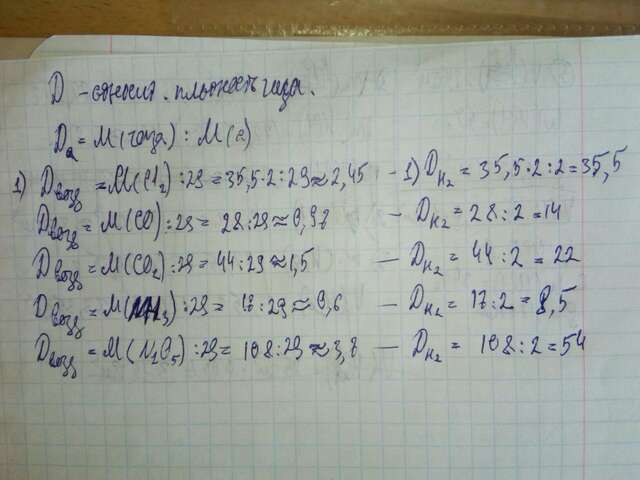 D - относит. плотность газа.
Dа = M(газа) : M(а)
1) Dвозд = M(Cl2) : 29 = 35,5·2 : 29 ≈ 2,45 – 1) DH2 = 35,5·2 : 2 = 35,5
Dвозд = M(CO) : 29 = 28 : 29 ≈ 0,98 – DH2 = 28 : 2 = 14
Dвозд = M(CO2) : 29 = 44 : 29 ≈ 1,5 – DH2 = 44 : 2 = 22
Dвозд = M(NH3) : 29 = 17 : 29 ≈ 0,6 – DH2 = 17 : 2 = 8,5
Dвозд = M(N2O5) : 29 = 108 : 29 ≈ 3,7 – DH2 = 108 : 2 = 54